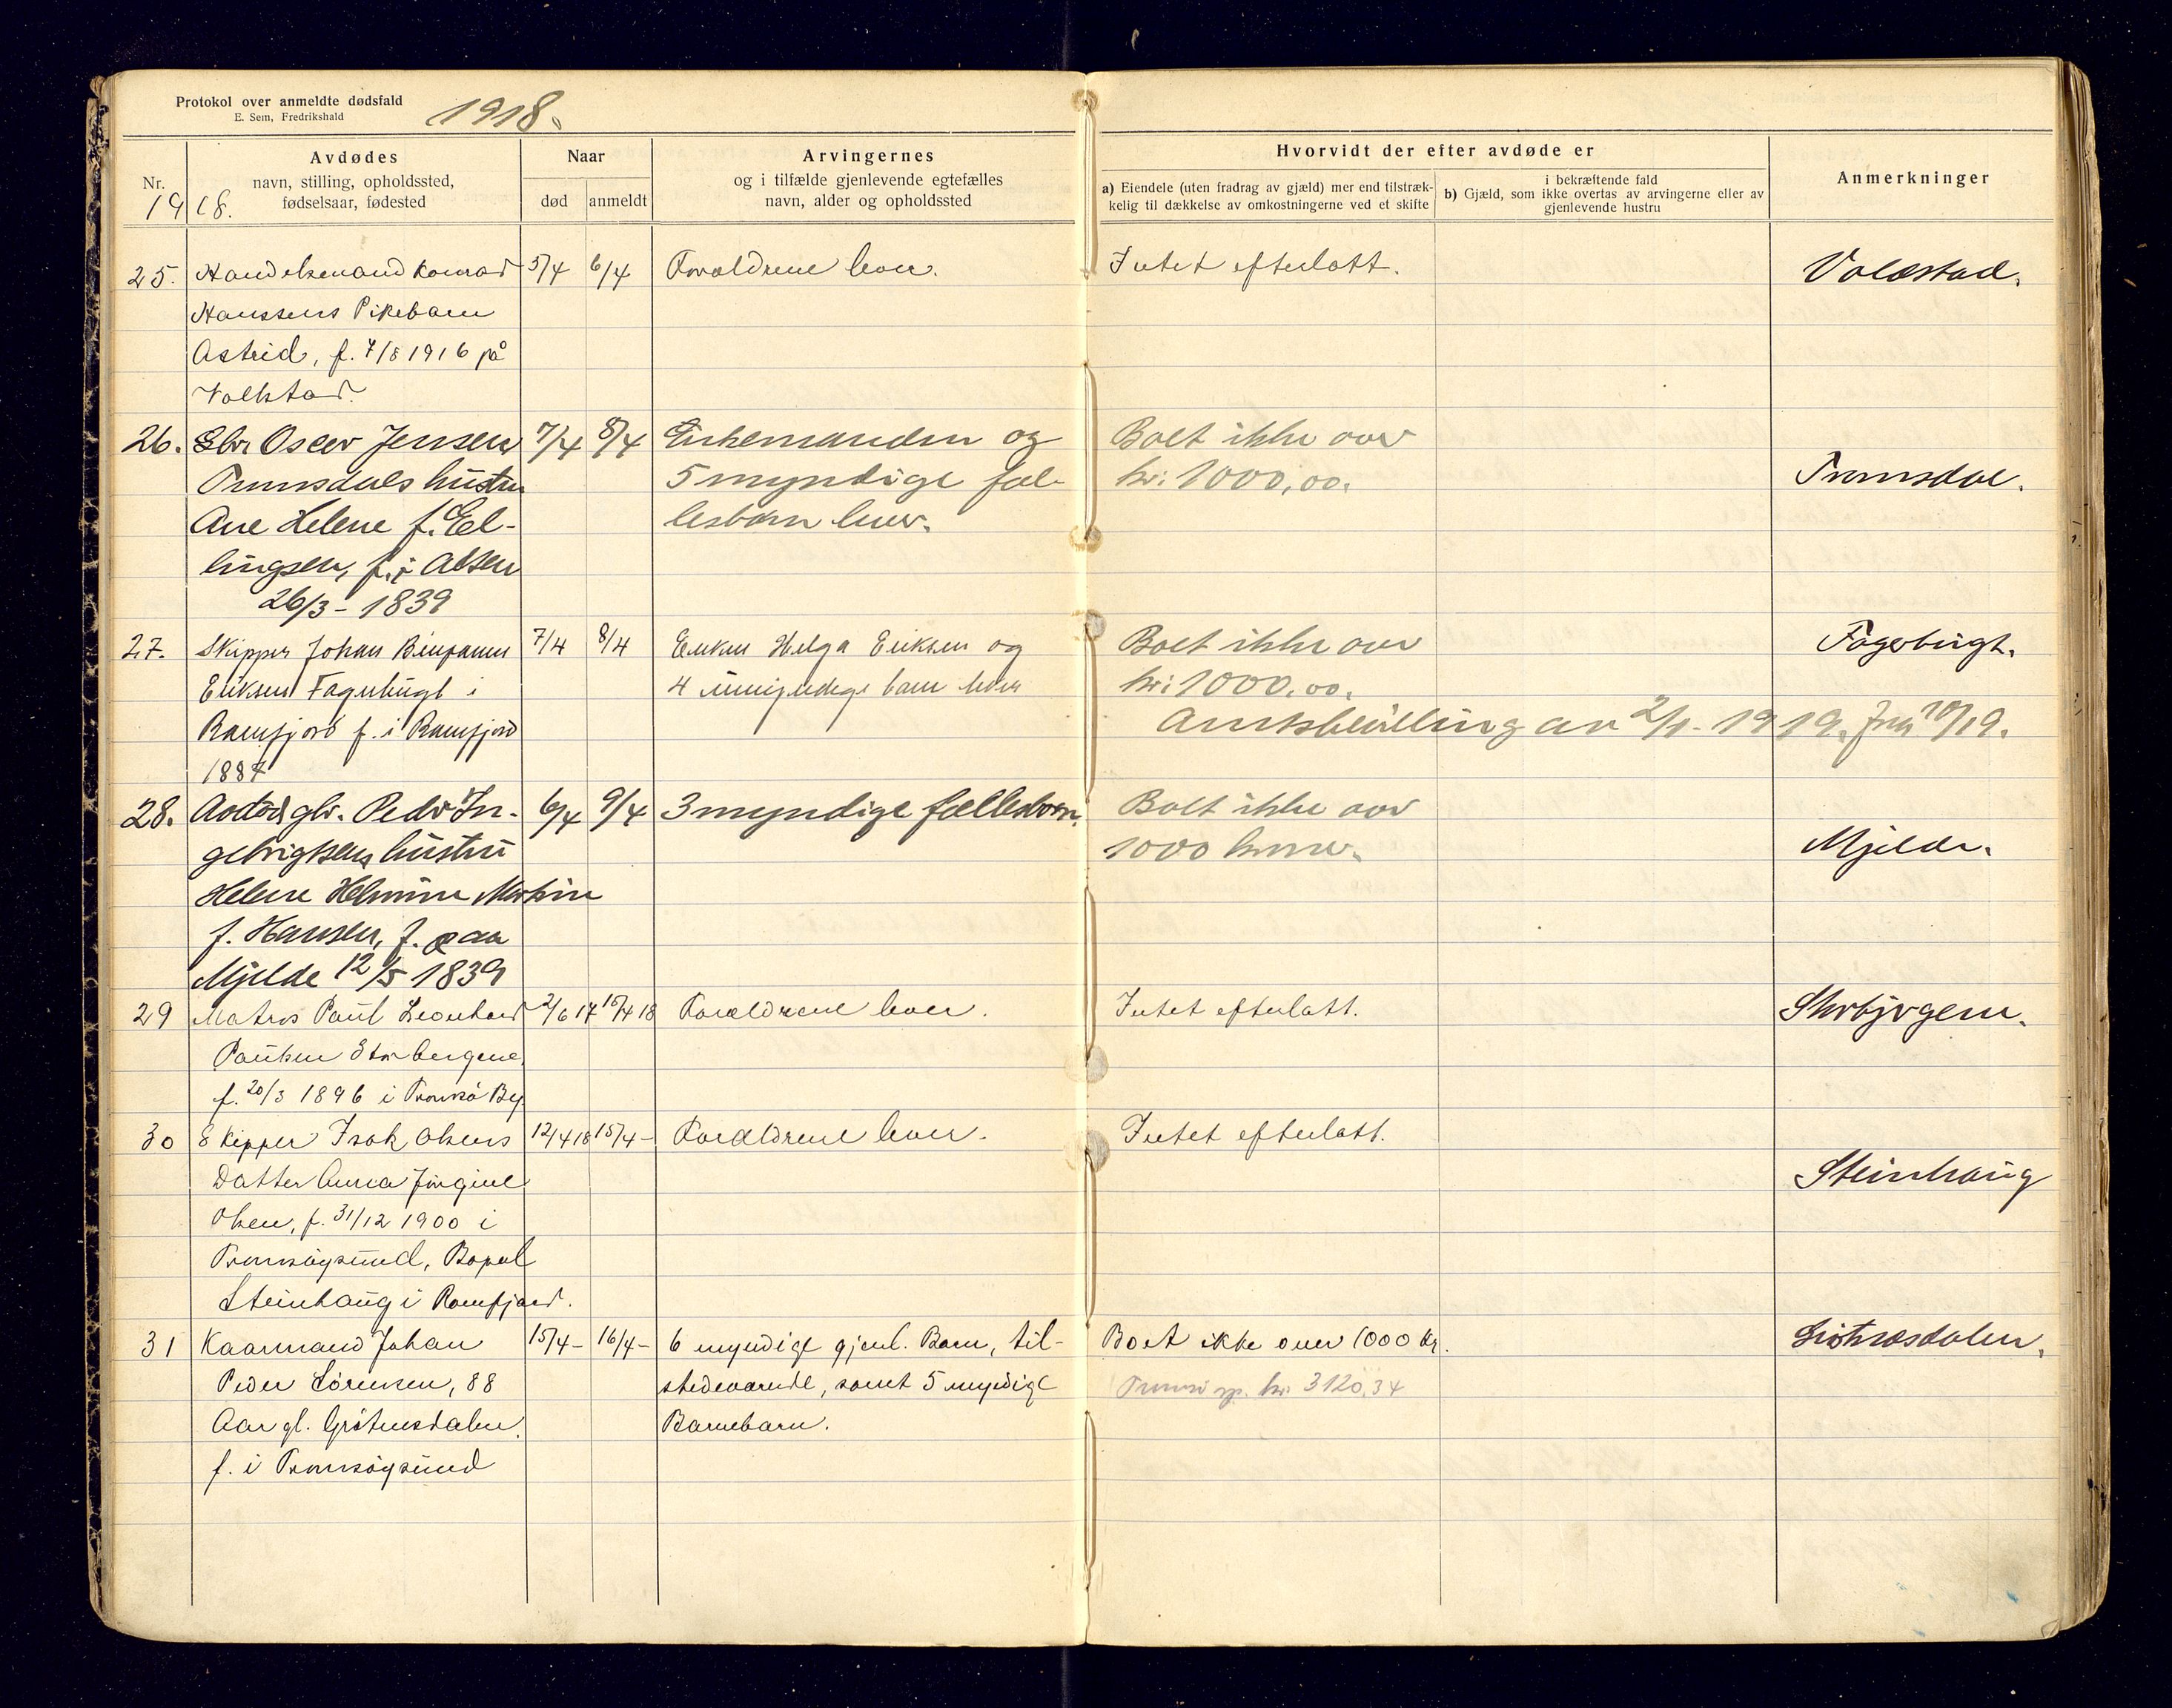 Protokol over anmeldte dødsfald
E. Sem, Fredrikshald
1918.
Nr.
1918.
Avdødes
navn, stilling, opholdssted,
fødselsaar, fødested
Naar
død
anmeldt
Arvingernes
og i tilfælde gjenlevende egtefælles
navn, alder og opholdssted
Hvorvidt der efter avdøde er
a) Eiendele (uten fradrag av gjæld) mer end tilstræk-
kelig til dækkelse av omkostningerne ved et skifte
i bekræftende fald
b) Gjæld, som ikke overtas av arvingerne eller av
gjenlevende hustru
Anmerkninger
25. Handelsmand Konrad 5/4 6/4 Forældrene lever. Intet efterlatt.
Hanssens Pikebarn
Astrid, f. 7/8 1916 på
26. Gbr Oscar Jensen 7/4 8/4 Enkemanden og Boet ikke over
Tromsdals hustru 5 myndige fæl- kr: 1000,00. Tromsdal.
Ane Helene f. El- lesbørn lever.
lingsen, f. i Alsen
26/3 - 1839
27. Skipper Johan Benjamin 7/4 8/4 Enken Helga Eriksen og Boet ikke over Fagerbugt.
Eriksen Fagerbugt i 4 umyndige barn lever kr: 1000,00.
Ramfjord f. i Ramfjord Amtsbevilling av 2/1 - 1919.
1884
28. Avdød gbr. Peder In- 6/4 9/4 3 myndige fællesbørn. Boet ikke over
gebrigtsens hustru 1000 kroner. Mjelde.
Helene Helmine Martine
f. Hansen, f. paa
Mjelde 12/5 - 1839
29 Matros Paul Leonhard 2/6 17 15/4 18 Forældrene lever. Intet efterlatt. Storbjergene.
Paulsen Storbergene,
f. 20/3 1896 i Tromsø By.
30 Skipper Isak Olsens 12/4 18 15/4 - Forældrene lever. Intet efterlatt.
Datter Anna Jørgine Steinhaug
Olsen, f. 31/12 1900 i
Tromsøysund, Bopæl
Steinhaug i Ramfjord.
31 Kaarmand Johan 15/4 - 16/4 - 6 myndige gjenl. Barn, til- Boet ikke over 1000 kr.
Peder Sørensen, 88 stedeværende, samt 5 myndige kr. 3120,34
Aar gl. Grøtnesdalen, Barnebarn.
f. i Tromsøysund